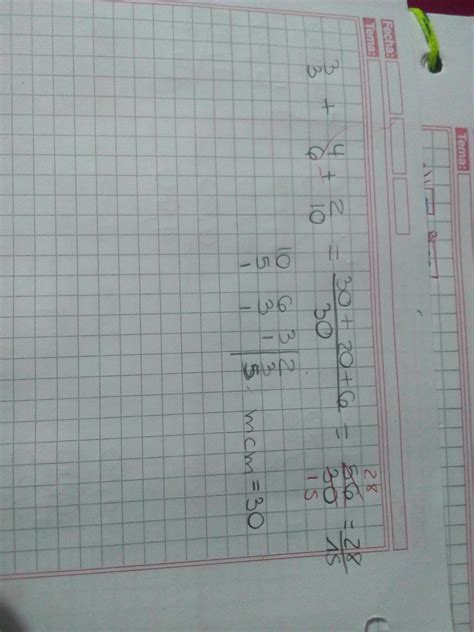 Fecha:
Tema:
Tema:
3/3 + 4/6 + 2/10 = (30 + 20 + 6)/30 = 56/30 = 28/15
28
15
10 6 3 | 2
5 3 1 | 3
1 1 | 5 mcm = 30